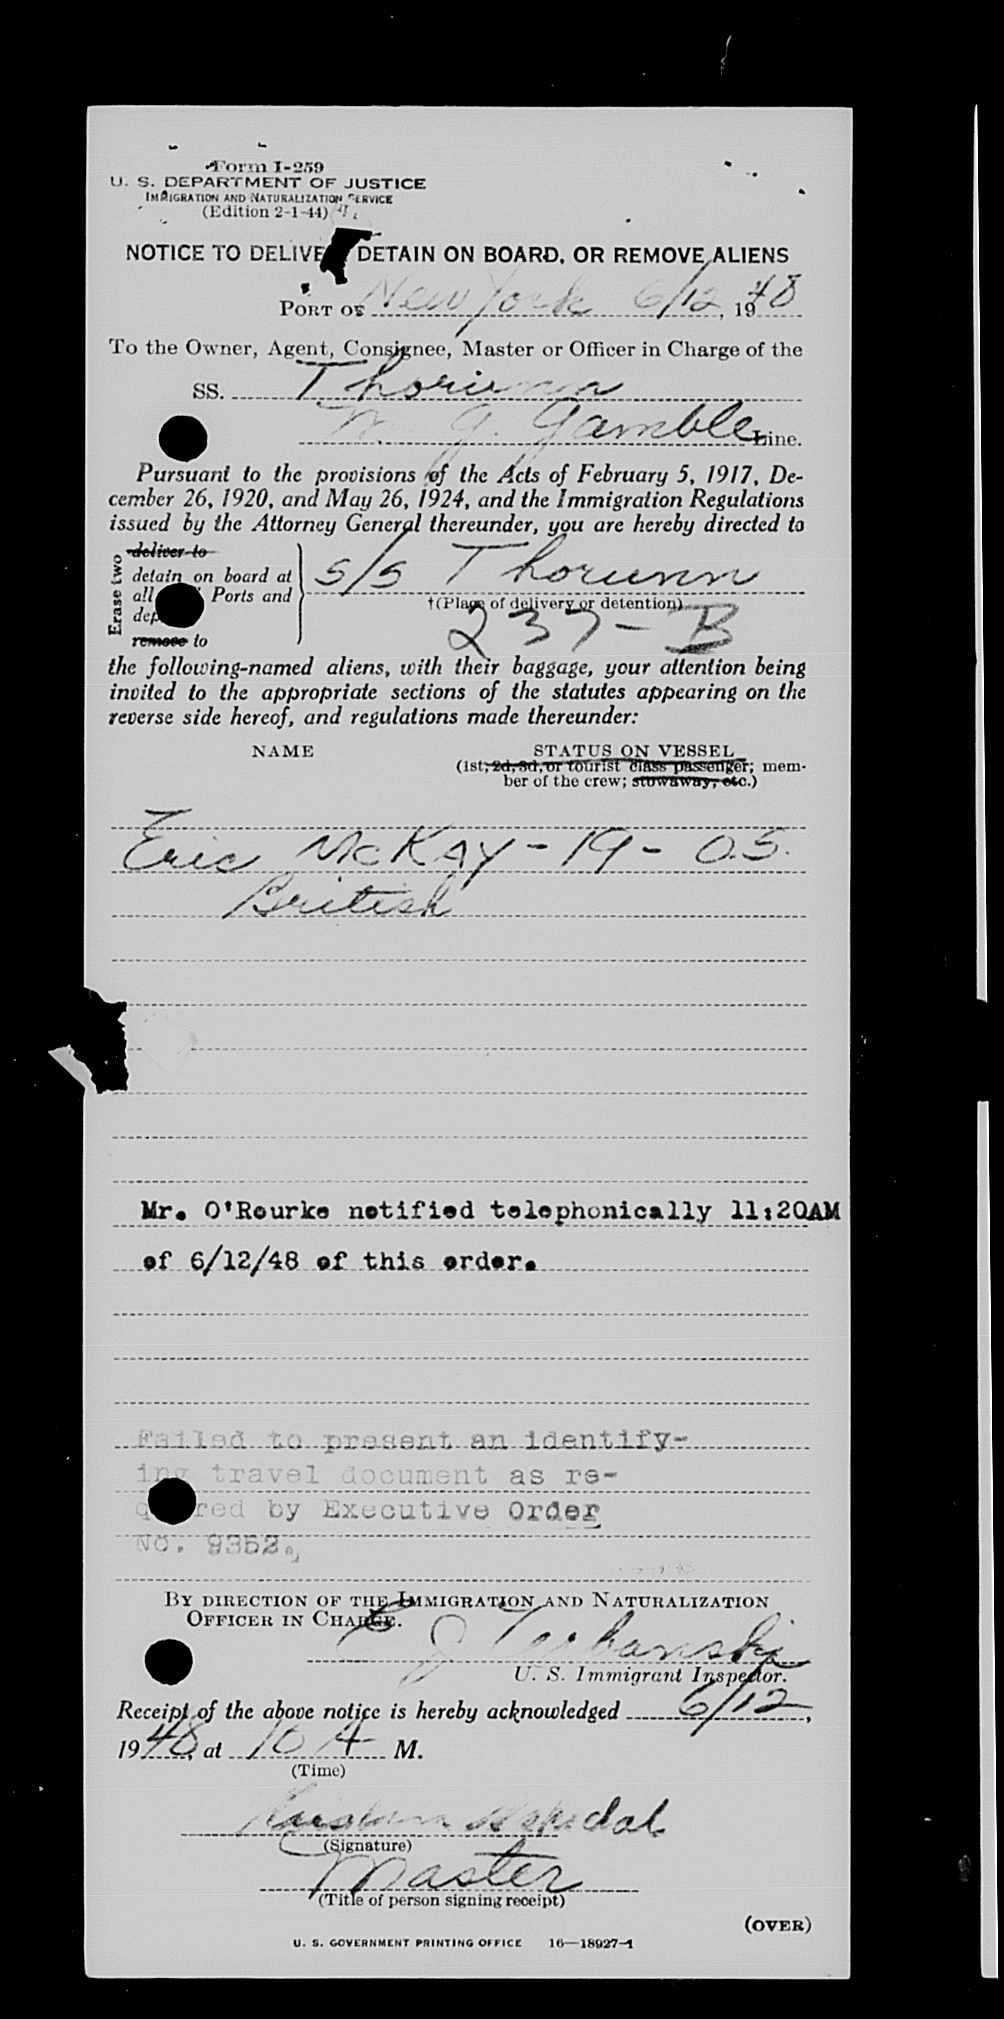 Form I-259
U. S. DEPARTMENT OF JUSTICE
IMMIGRATION AND NATURALIZATION SERVICE
(Edition 2-1-44)
NOTICE TO DELIVE DETAIN ON BOARD, OR REMOVE ALIENS
PORT OF New York 6/12, 1948
To the Owner, Agent, Consignee, Master or Officer in Charge of the
SS. Thorunn
G. Gamble Line.
Pursuant to the provisions of the Acts of February 5, 1917, De-
cember 26, 1920, and May 26, 1924, and the Immigration Regulations
issued by the Attorney General thereunder, you are hereby directed to
Erase two
deliver to
detain on board at
all Ports and
dep
remove to
s/s Thorunn
†(Place of delivery or detention)
237-B
the following-named aliens, with their baggage, your attention being
invited to the appropriate sections of the statutes appearing on the
reverse side hereof, and regulations made thereunder:
NAME STATUS ON VESSEL
(1st, 2d, 3d, or tourist class passenger; mem-
ber of the crew; stowaway, etc.)
Eric McKAY - 19 - O.S.
British
Mr. O'Rourke notified telephonically 11:20AM
of 6/12/48 of this order.
Failed to present an identify-
ing travel document as re-
q red by Executive Order
No. 9352.
BY DIRECTION OF THE IMMIGRATION AND NATURALIZATION
OFFICER IN CHARGE.
U. S. Immigrant Inspector.
Receipt of the above notice is hereby acknowledged 6/12,
1948, at 10 A M.
(Time)
(Signature)
Master
(Title of person signing receipt)
(OVER)
U. S. GOVERNMENT PRINTING OFFICE 16—18927-1